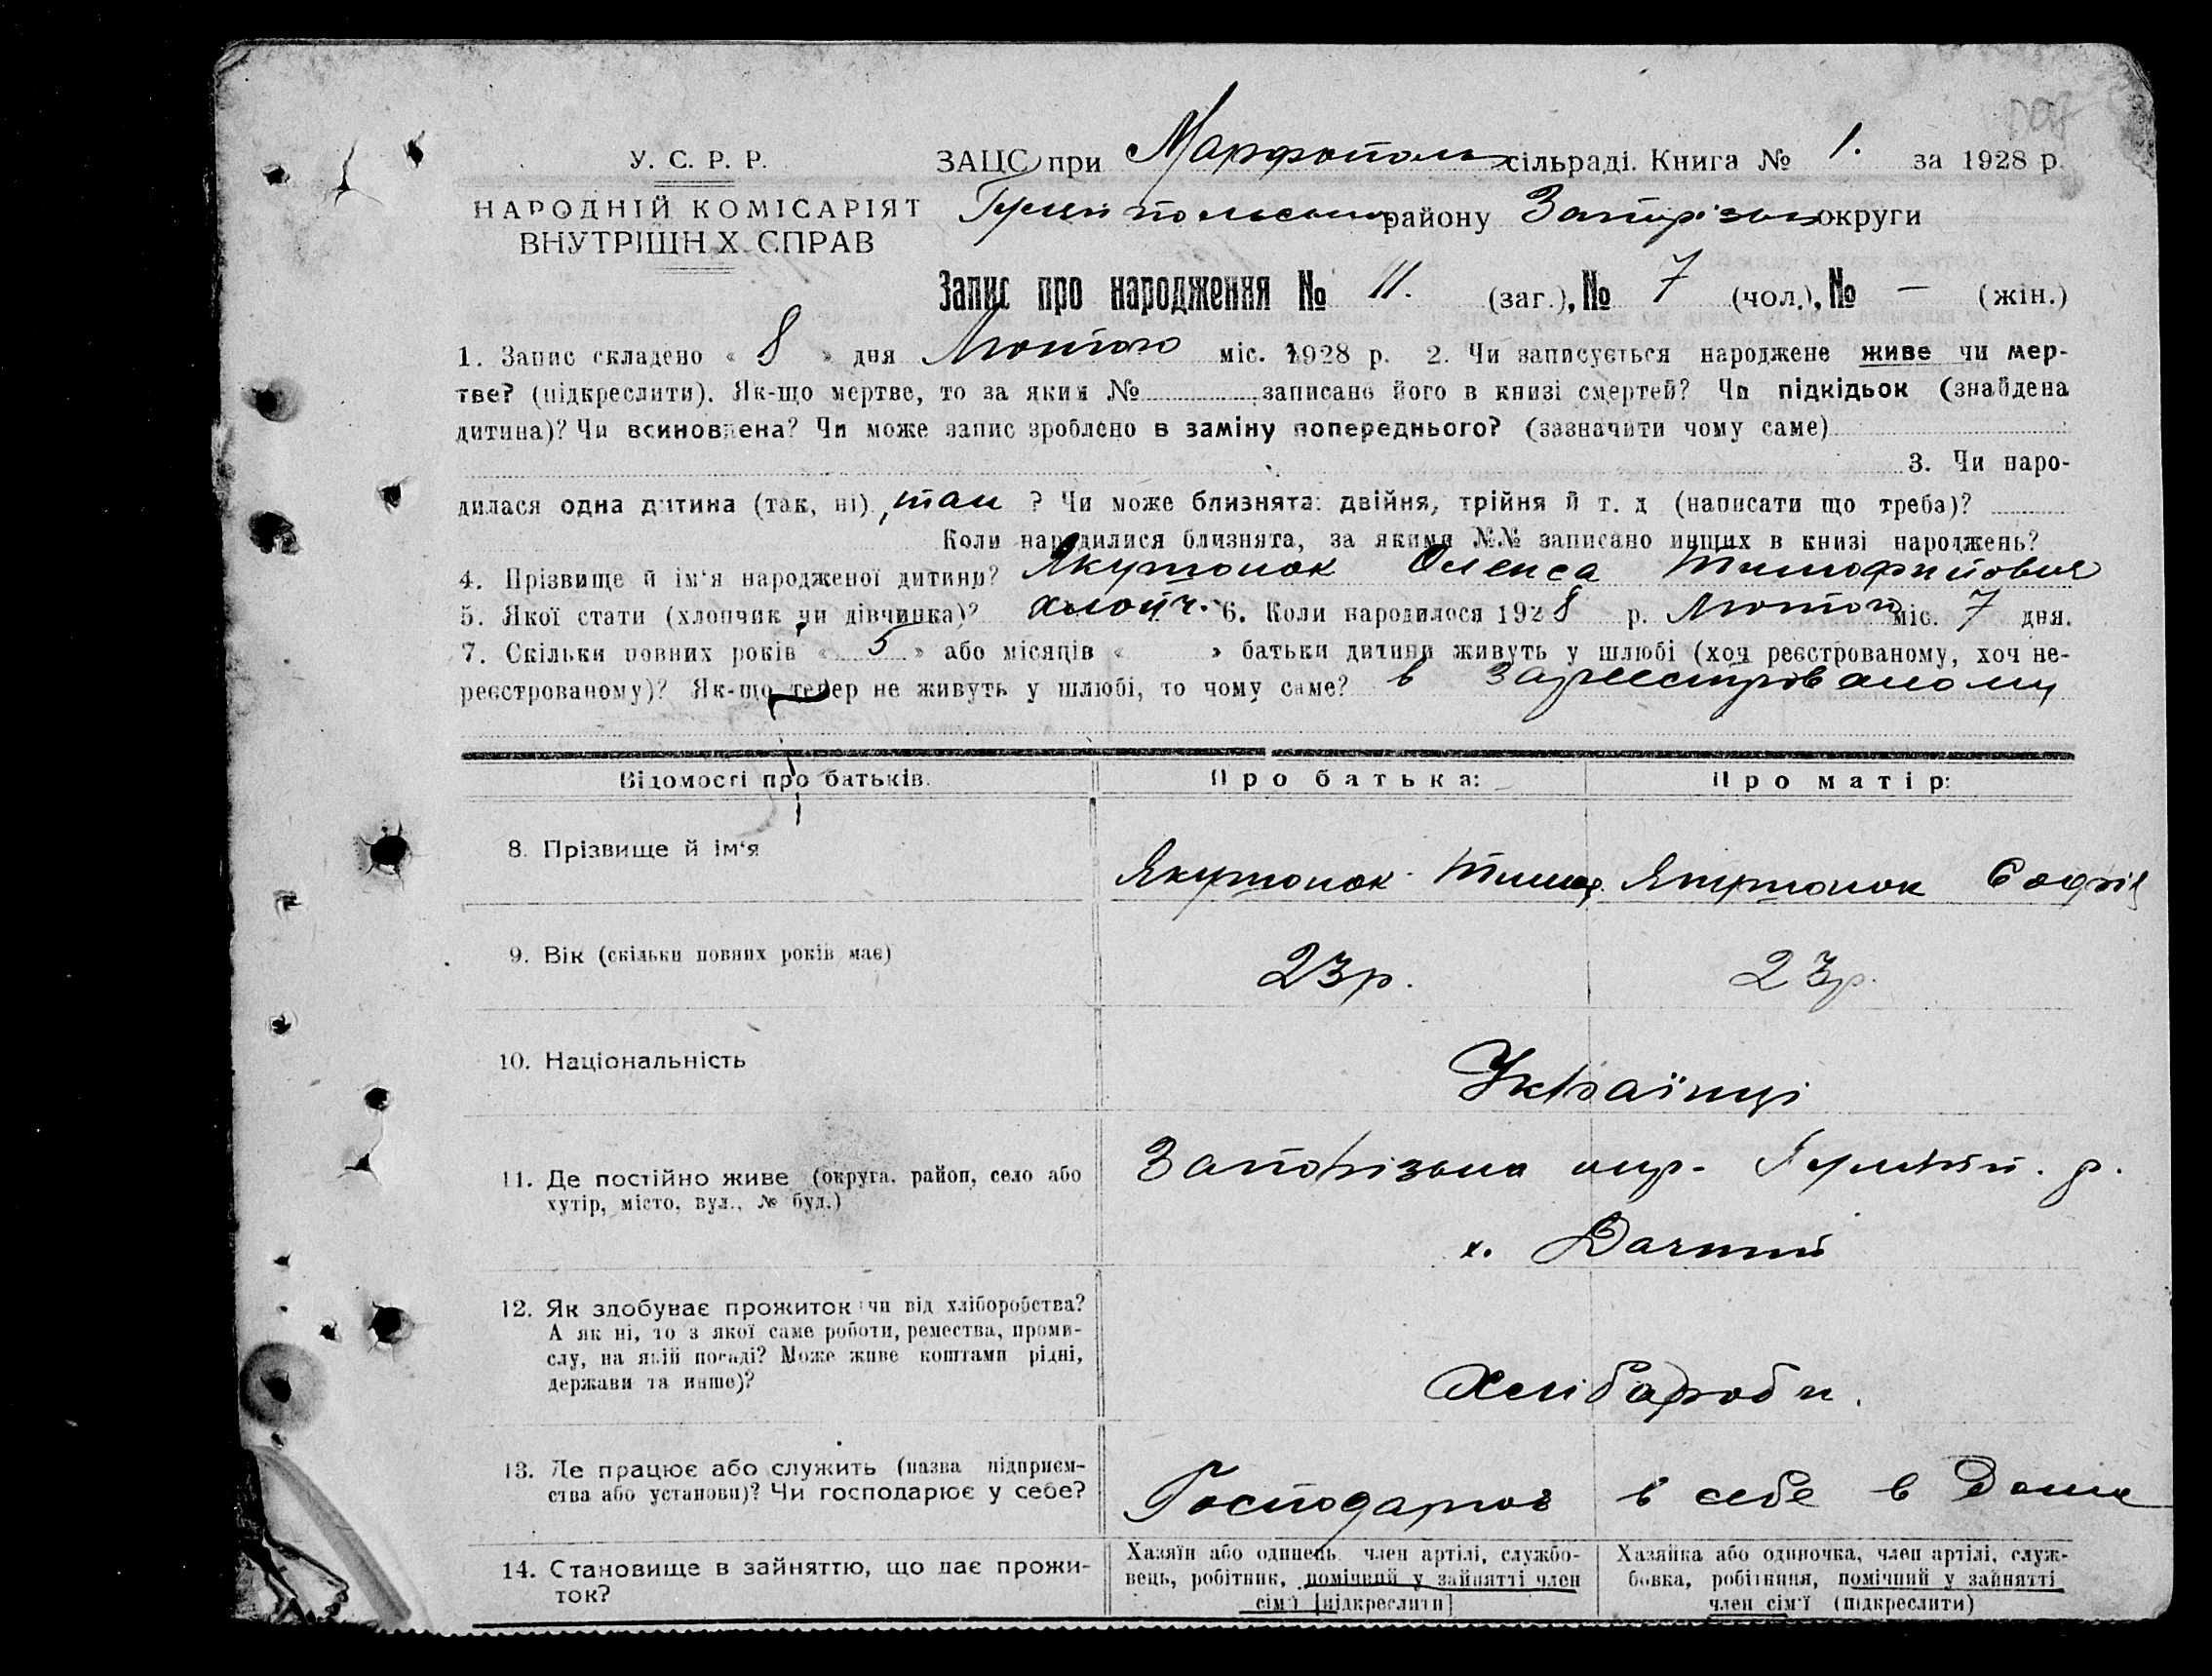 У. С. Р. Р.
НАРОДНІЙ КОМІСАРІЯТ
ВНУТРІШН Х СПРАВ
ЗАЦС при Марфополь сільраді. Книга № 1. за 1928 р.
району Запорізьк округи
Запис про народження № 11. (заг.), № 7 (чол.), № — (жін.)
1. Запис складено « 8 » дня Лютого міс. 1928 р. 2. Чи записується народжене живе чи мер-
тве? (підкреслити). Як-що мертве, то за яким № записано його в книзі смертей? Чи підкідьок (знайдена
дитина)? Чи всиновлена? Чи може запис зроблено в заміну попереднього? (зазначити чому саме)
3. Чи наро-
дилася одна дитина (так, ні) так ? Чи може близнята: двійня, трійня й т. д (написати що треба)?
Коли народилися близнята, за якими №№ записано инших в книзі народжень?
4. Прізвище й ім'я народженої дитини? Якутонок Олекса Тимофийович
5. Якої стати (хлопчик чи дівчинка)? хлопч. 6. Коли народилося 1928 р. Лютого міс. 7 дня.
7. Скільки повних років « 5 » або місяців « » батьки дитини живуть у шлюбі (хоч реєстрованому, хоч не-
реєстрованому)? Як-що тепер не живуть у шлюбі, то чому саме? в зареестрованому
Відомості про батьків.
Про батька:
Про матір:
8. Прізвище й ім'я
Якутонок Тимоф.
Якутонок Софія
9. Вік (скільки повних років має)
23р.
23р.
10. Національність
Українці
11. Де постійно живе (округа, район, село або
хутір, місто, вул., № буд.)
Запорізька окр. р.
х. Дачний
12. Як здобуває прожиток чи від хліборобства?
А як ні, то з якої саме роботи, ремества, проми-
слу, на якій посаді? Може живе коштами рідні,
держави та инше)?
Хлібароби.
13. Де працює або служить (назва підприєм-
ства або установи)? Чи господарює у себе?
Господарюв в себе в Дома
14. Становище в зайняттю, що дає прожи-
ток?
Хазяїн або одинець, член артілі, службо-
вець, робітник, помічний у зайнятті член
сім'ї [підкреслити]
Хазяйка або одиночка, член артілі, служ-
бовка, робітниця, помічний у зайнятті
член сім'ї (підкреслити)